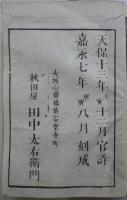 天保十三年寅十二月官許
嘉永七年甲寅八月刻成
大坂心齋橋筋安堂寺町
秋田屋 田中太右衛門